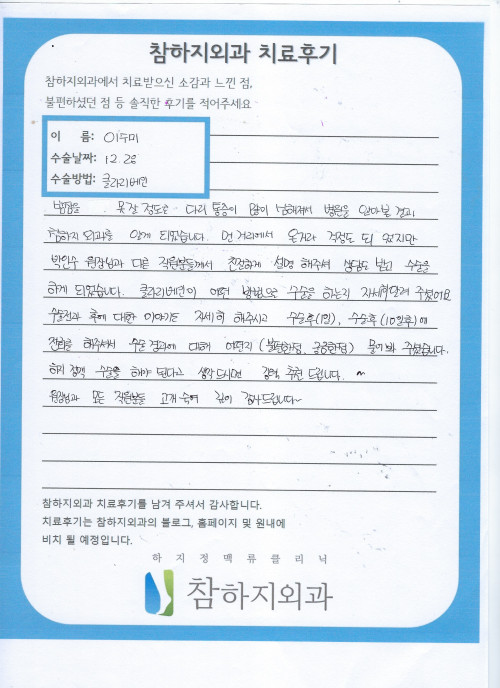 참하지외과 치료후기
참하지외과에서 치료받으신 소감과 느낀 점,
불편하셨던 점 등 솔직한 후기를 적어주세요
이 름: 이주미
수술날짜: 12. 28
수술방법: 클라리베인
밤잠을 못잘 정도로 다리 통증이 많이 심해져서 병원을 알아본 결과
참하지 외과를 알게 되었습니다. 먼 거리에서 온거라 걱정도 되 었지만
박인수 원장님과 다른 직원분들께서 친절하게 설명 해주셔 상담도 받고 수술을
하게 되었습니다. 클라리베인이 어떤 방법으로 수술을 하는지 자세히 알려 주셨어요
수술전과 후에 대한 이야기도 자세히 해주시고 수술후(1일), 수술후 (10일후)에
전화를 해주셔서 수술 결과에 대해 어떤지 (불편한점, 궁금한점) 물어봐 주셨습니다.
하지 정맥 수술을 하야 된다고 생각 드시면 강력 추천 드립니다. ~
원장님과 모든 직원분들 고개 숙여 깊이 감사드립니다~
참하지외과 치료후기를 남겨 주셔서 감사합니다.
치료후기는 참하지외과의 블로그, 홈페이지 및 원내에
비치 될 예정입니다.
하지정맥류클리닉
참하지외과